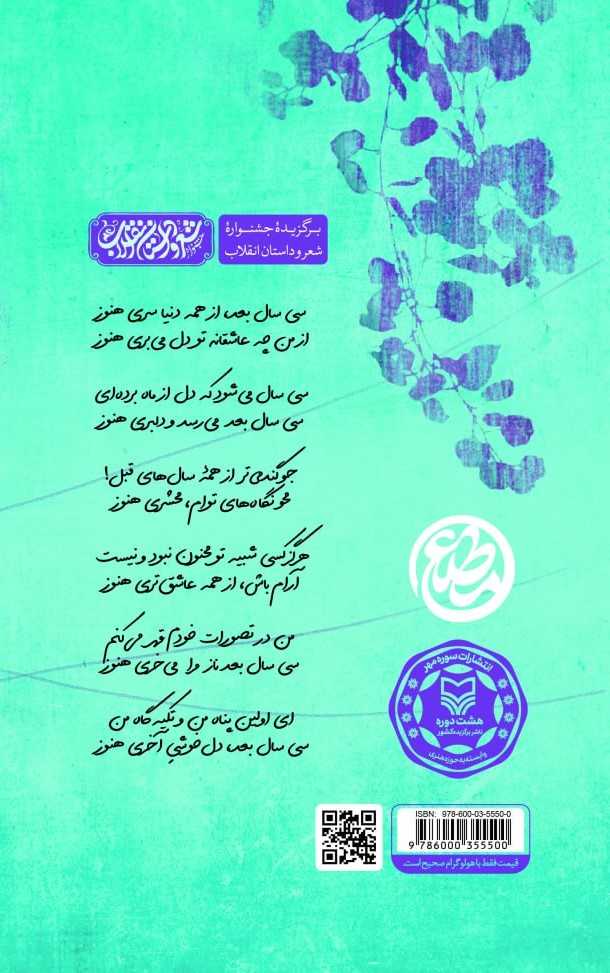 برگزیدهٔ جشنوارهٔ
شعر و داستان انقلاب
سی سال بعد، از همه دنیا سری هنوز
از من چه عاشقانه تو دل می‌بری هنوز
سی سال می‌شود که دل از ماه برده‌ای
سی سال بعد می‌رسد و دلبری هنوز
جوگندمی‌تر از همهٔ سال‌های قبل!
محو نگاه‌های توام، محشری هنوز
هرگز کسی شبیه تو مجنون نبود و نیست
آرام باش، از همه عاشق‌تری هنوز
من در تصورات خودم قهر می‌کنم
سی سال بعد ناز مرا می‌خری هنوز
ای اولین پناه من و تکیه‌گاه من
سی سال بعد، دل‌خوشیِ آخری هنوز
انتشارات سوره مهر
هشت دوره
ناشر برگزیده کشور
وابسته به حوزه هنری
ISBN: 978-600-03-5550-0
9 786000 355500
قیمت فقط با هولوگرام صحیح است.